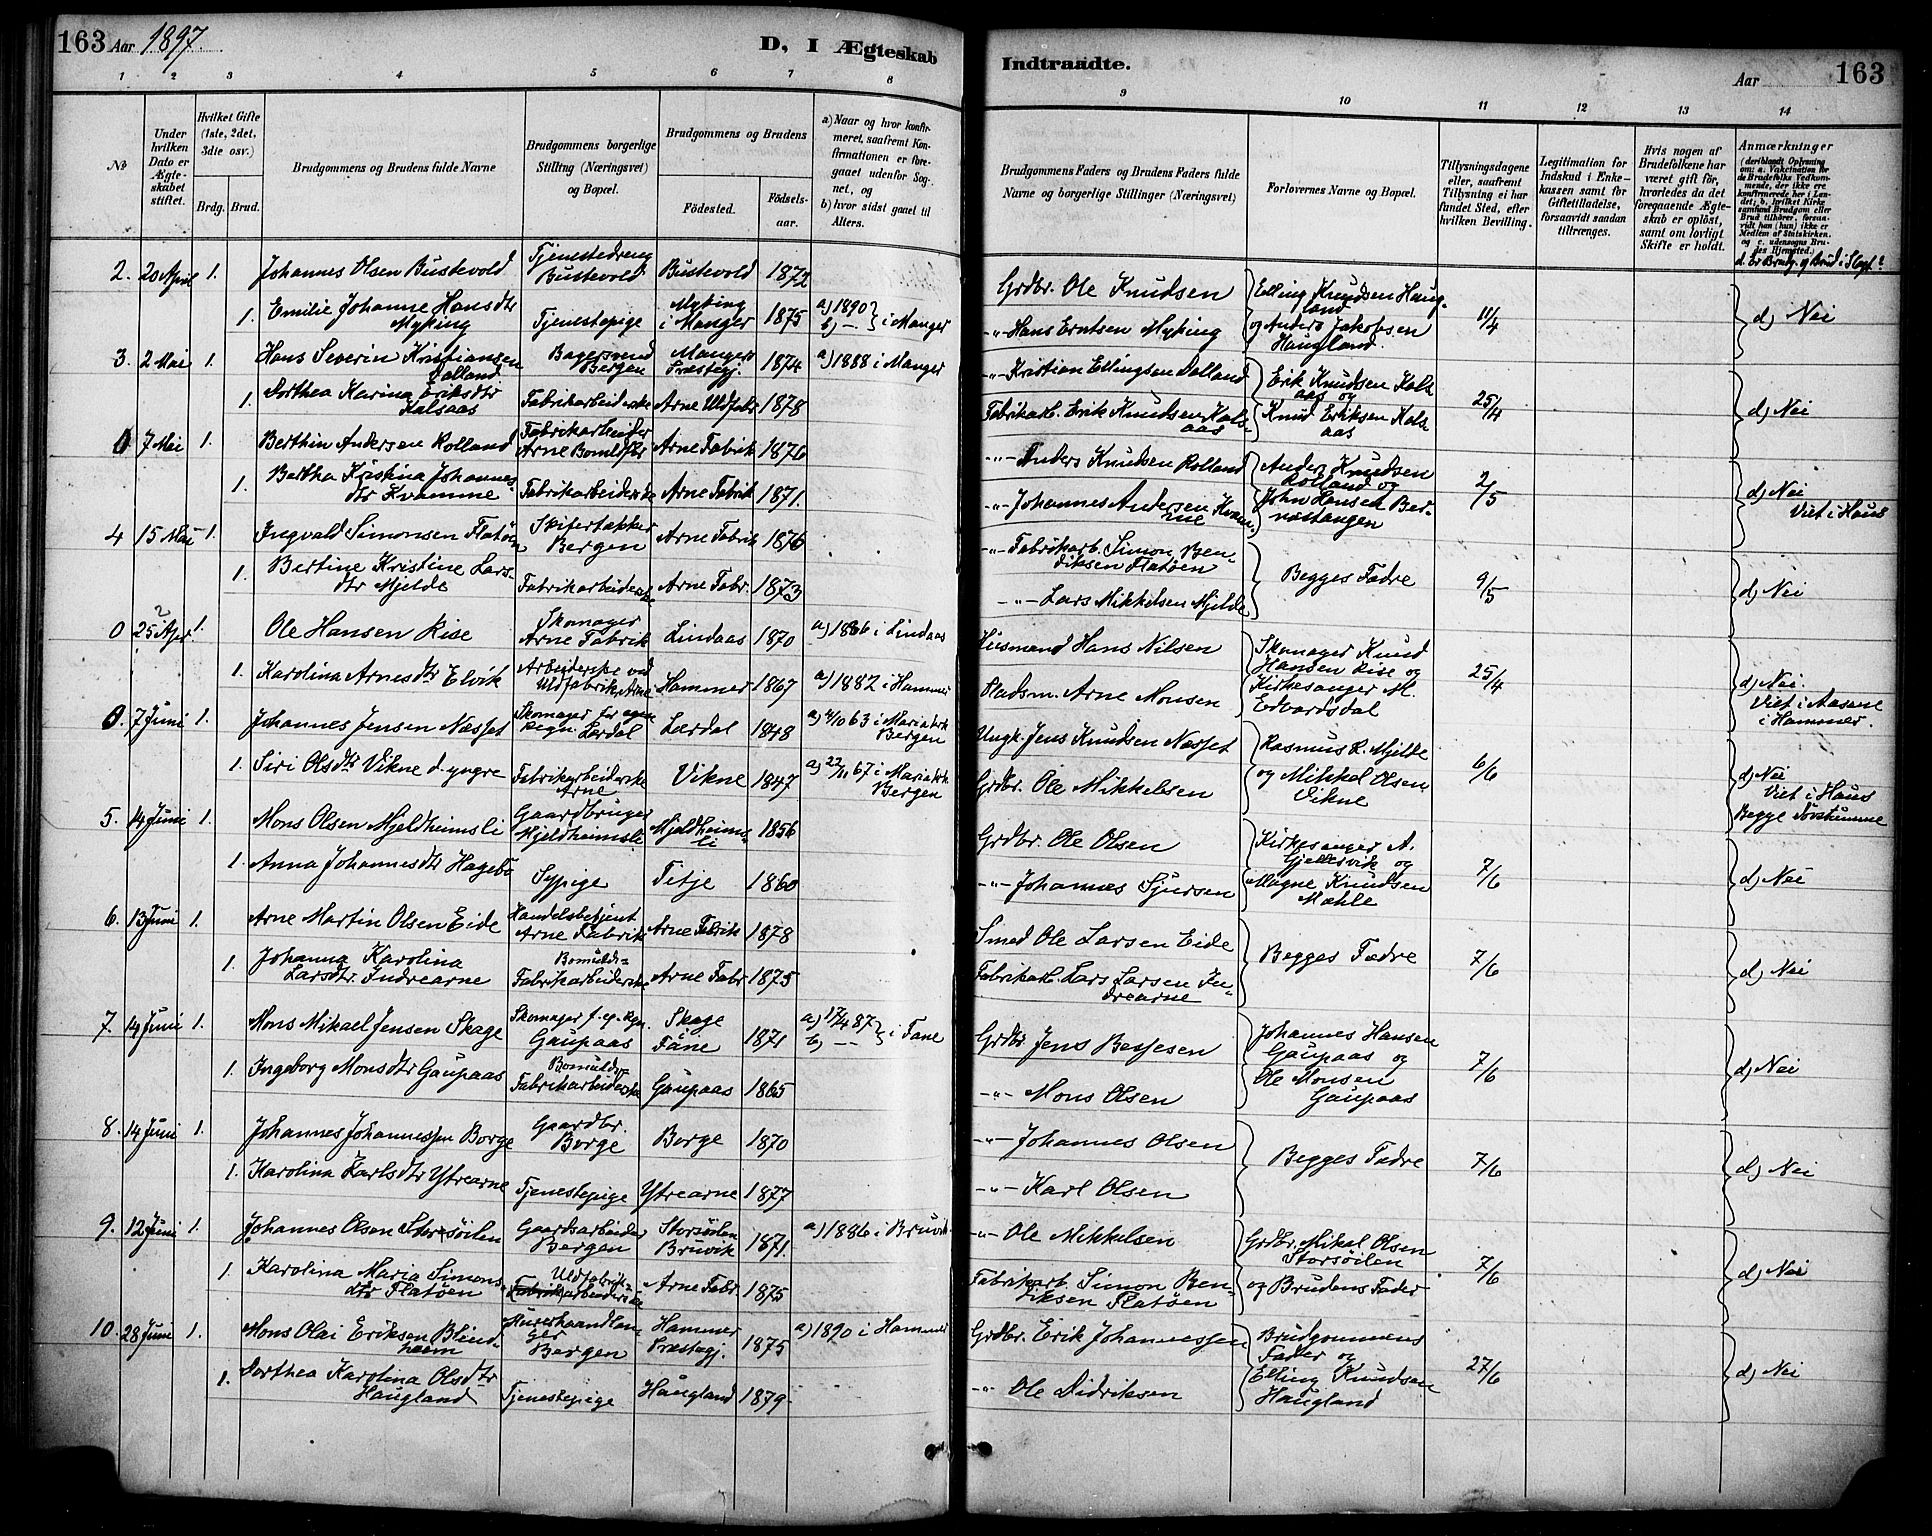 163 Aar 1897.
D, I Ægteskab
Indtraadte.
Aar 163
1 2 3 4 5 6 7 8
9 10 11 12 13 14
No
Under hvilken Dato er Ægteskabet stiftet.
Hvilket Gifte (1ste, 2det, 3die osv.)
Brdg. Brud.
Brudgommens og Brudens fulde Navne
Brudgommens borgerlige Stilling (Næringsvei) og Bopæl.
Brudgommens og Brudens
Fødested.
Fødselsaar.
a) Naar og hvor konfirmeret, saafremt Konfirmationen er foregaaet udenfor Sognet, og
b) hvor sidst gaaet til Alters.
Brudgommens Faders og Brudens Faders fulde Navne og borgerlige Stillinger (Næringsvei)
Forlovernes Navne og Bopæl.
Tillysningsdagene eller, saafremt Tillysning ei har fundet Sted, efter hvilken Bevilling.
Legitimation for Indskud i Enkekassen samt for Giftetilladelse, forsaavidt saadan tiltrænges.
Hvis nogen af Brudefolkene har været gift før, hvorledes da det foregaaende Ægteskab er opløst, samt om lovligt Skifte er holdt.
Anmærkninger
(deriblandt Oplysning om: a. Vakcination for de Brudefolks Vedkommende, der ikke ere konfirmerede her i Landet; b. hvilket Kirkesamfund Brudgom eller Brud tilhører, forsaavidt han (hun) ikke er Medlem af Statskirken, og c. udensogns Brudes Hjemsted.)
d. Er Brudg. og Brud i Slægt?
2. 20 April 1. Johannes Olsen Bustevold Tjenestedreng Bustevold Bustevold 1872 Grdbr. Ole Knudsen Elling Knudsen Haugland 11/4 d) Nei
1. Emilie Johanne Hansdtr Myking Tjenestepige Myking i Manger 1875 a) 1890 b) — } i Manger -"- Hans Erntsen Myking og Anders Jakobsen Haugland
3. 2 Mai 1. Hans Severin Kristiansen Dalland Bagersvend Bergen Manger Præstegj. 1874 a) 1888 i Manger -"- Kristian Ellingsen Dalland Erik Knudsen Kalsaas og 25/4 d) Nei
1. Dorthea Karina Eriksdtr Kalsaas Fabrikarbeiderske Arne Uldfabr. 1878 Fabrikarb. Erik Knudsen Kalsaas Knud Eriksen Kalsaas
0 7 Mai 1. Berthin Andersen Rolland Fabrikarbeider Arne Bomuldfbr Arne Fabrik 1876 -"- Anders Knudsen Rolland Anders Knudsen Rolland og 2/5 d) Nei
1. Bertha Kristina Johannesdtr Kvamme Fabrikarbeiderske Arne Fabrik 1871. -"- Johannes Andersen Kvamme John Hansen Bernestangen Viet i Haus
4 15 Mai 1. Ingvald Simonsen Flatøen Skifertækker Bergen Arne Fabrik 1876 -"- Fabrikarb. Simon Bendiksen Flatøen Begges Fædre 9/5 d) Nei
1. Bertine Kristine Larsdtr Mjelde Fabrikarbeiderske Arne Fabr. 1873 -"- Lars Mikkelsen Mjelde
0 25 Apr. 1. Ole Hansen Rise Skomager Arne Fabrik Lindaas 1870 a) 1886 i Lindaas Husmand Hans Nilsen Skomager Knud Hansen Rise og 25/4 d) Nei.
1. Karolina Arnesdtr Elvik Arbeiderske ved Uldfabrik Arne Hammer 1867 a) 1882 i Hammer Pladsm. Arne Monsen Kirkesanger M. Edvardsdal Viet i Aasane i Hammer.
0. 7 Juni 1. Johannes Jensen Næsset Skomager for egen Regn. Lærdal Lærdal 1848 a) 4/10 63 i Mariakrk Bergen Ungk. Jens Knudsen Næsset Rasmus R. Mjelde 6/6 d) Nei
1. Siri Olsdtr Vikne d. yngre Fabrikarbeiderske Arne Vikne 1847 a) 22/11 67 i Mariakrk Bergen Grdbr. Ole Mikkelsen og Mikkel Olsen Vikne Viet i Haus Begge Døvstumme
5. 14 Juni 1. Mons Olsen Mjeldheimsli Gaardbruger Mjeldheimsli Mjeldheimsli 1856 Grdbr. Ole Olsen Kirkesanger A. Gjellesvik og 7/6 d) Nei
1. Anna Johannesdtr Hagebø Sypige Titje 1860 -"- Johannes Sjursen Magne Knudsen Mæhle
6. 13 Juni 1. Arne Martin Olsen Eide Handelsbetjent Arne Fabrik Arne Fabrik 1878 Smed Ole Larsen Eide Begges Fædre 7/6 d) Nei
1. Johanna Karolina Larsdtr Indrearne Bomulds-Fabrikarbeiderske Arne Fabr 1875 Fabrikarb. Lars Larsen Indrearne
7. 14 Juni 1. Mons Mikael Jensen Skage Skomager f. eg. Rgn. Gaupaas Skage Fane 1871 a) 17/4 87 b) — } i Fane Grdbr Jens Bessesen Johannes Hansen Gaupaas og 7/6 d) Nei
1. Ingeborg Monsdtr Gaupaas Bomulds-Fabrikarbeiderske Gaupaas 1865 -"- Mons Olsen Ole Monsen Gaupaas
8. 14 Juni 1. Johannes Johannessen Borge Gaardbr. Borge Borge 1870 -"- Johannes Olsen Begges Fædre 7/6 d) Nei
1. Karolina Karlsdtr Ytrearne Tjenestepige Ytrearne 1877 -"- Karl Olsen
9. 12 Juni 1. Johannes Olsen Storsøilen Gaardsarbeider Bergen Storsøilen Bruvik 1871. a) 1886 i Bruvik -"- Ole Mikkelsen Grdbr. Mikal Olsen Storsøilen 7/6 d) Nei
1. Karolina Maria Simonsdtr Flatøen Uldfabrik-Fabrikarbeiderske Arne Fabr. 1875 Fabrikarb. Simon Bendiksen Flatøen og Brudens Fader
10. 28 Juni 1. Mons Olai Eriksen Blindheim Murerhaandlanger Bergen Hammer Præstegj. 1875 a) 1890 i Hammer Grdbr. Erik Johannessen Brudgommens Fader og 27/6 d) Nei
1. Dorthea Karolina Olsdtr Haugland Tjenestepige Haugland 1879. -"- Ole Didriksen Elling Knudsen Haugland